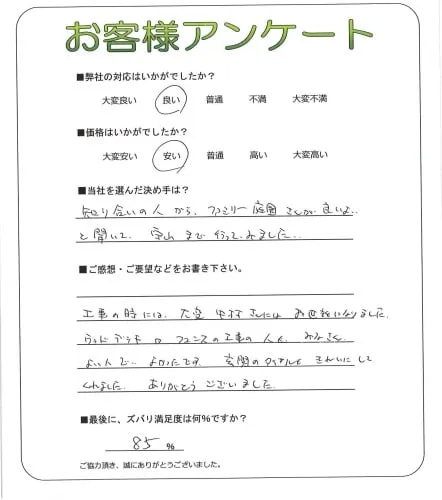 お客様アンケート
■弊社の対応はいかがでしたか？
大変良い 良い 普通 不満 大変不満
■価格はいかがでしたか？
大変安い 安い 普通 高い 大変高い
■当社を選んだ決め手は？
知り合いの人から、ファミリー庭園さんが良いよ、
と聞いて、守山まで行ってみました。
■ご感想・ご要望などをお書き下さい。
工事の時には、大変 中村さんには お世話になりました。
ウッドデッキや フェンスの工事の人も、みなさん
よい人で よかったです。玄関のタイルも きれいにして
くれました。ありがとうございました。
■最後に、ズバリ満足度は何％ですか？
85 %
ご協力頂き、誠にありがとうございました。